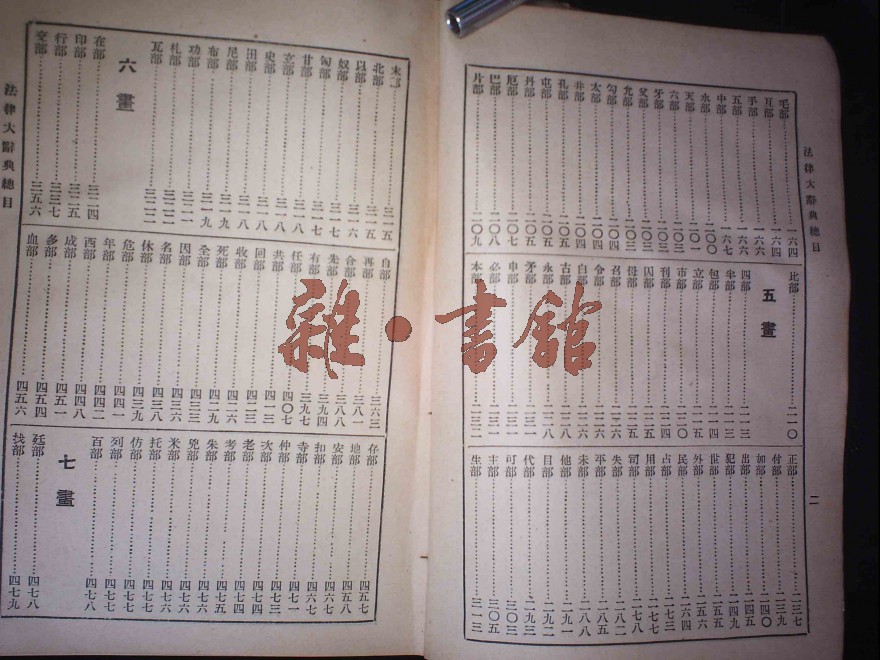 法律大辭典總目
二
毛部 一六四
互部 一六四
手部 一六六
五部 一六六
中部 一六七
水部 二〇〇
天部 二〇一
六部 二〇三
牙部 二〇三
父部 二〇三
允部 二〇三
勾部 二〇四
太部 二〇四
井部 二〇四
孔部 二〇五
屯部 二〇五
丹部 二〇五
厄部 二〇七
巴部 二〇八
片部 二〇九
比部 二一〇
五畫
四部 二一三
半部 二一三
包部 二一四
立部 二一五
市部 二二〇
刊部 二二五
囚部 二二五
母部 二二五
召部 二二六
令部 二二六
白部 二二七
古部 二二八
永部 二二八
矛部 二三一
申部 二三一
必部 二三二
本部 二三二
正部 二三七
付部 二三九
加部 二四〇
出部 二四五
犯部 二四九
世部 二五五
外部 二五六
民部 二六四
占部 二七三
用部 二七七
司部 二七八
失部 二八二
平部 二八五
未部 二八八
他部 二九一
目部 二九二
代部 二九三
可部 三〇三
主部 三〇五
生部 三一三
法律大辭典總目
末部 三一五
北部 三一五
以部 三一六
奴部 三一七
匈部 三一七
甘部 三一七
立部 三一八
史部 三一八
田部 三一八
尼部 三一九
布部 三一九
功部 三二一
札部 三二二
瓦部 三二二
六畫
在部 三二四
印部 三二五
行部 三三七
交部 三五六
自部 三六三
再部 三八一
合部 三八八
先部 三九四
有部 三九七
任部 四〇七
共部 四一三
回部 四一三
收部 四一六
死部 四二六
全部 四三三
因部 四二九
名部 四二九
休部 四三八
危部 四四一
年部 四四二
西部 四四八
成部 四五一
多部 四五四
血部 四五六
存部 四五七
地部 四五八
安部 四六七
扣部 四六七
寺部 四七一
仲部 四七三
次部 四七四
老部 四七四
考部 四七五
朱部 四七六
兇部 四七六
米部 四七六
托部 四七七
仿部 四七七
列部 四七七
百部 四七八
七畫
廷部 四七八
找部 四七九
雜·書館